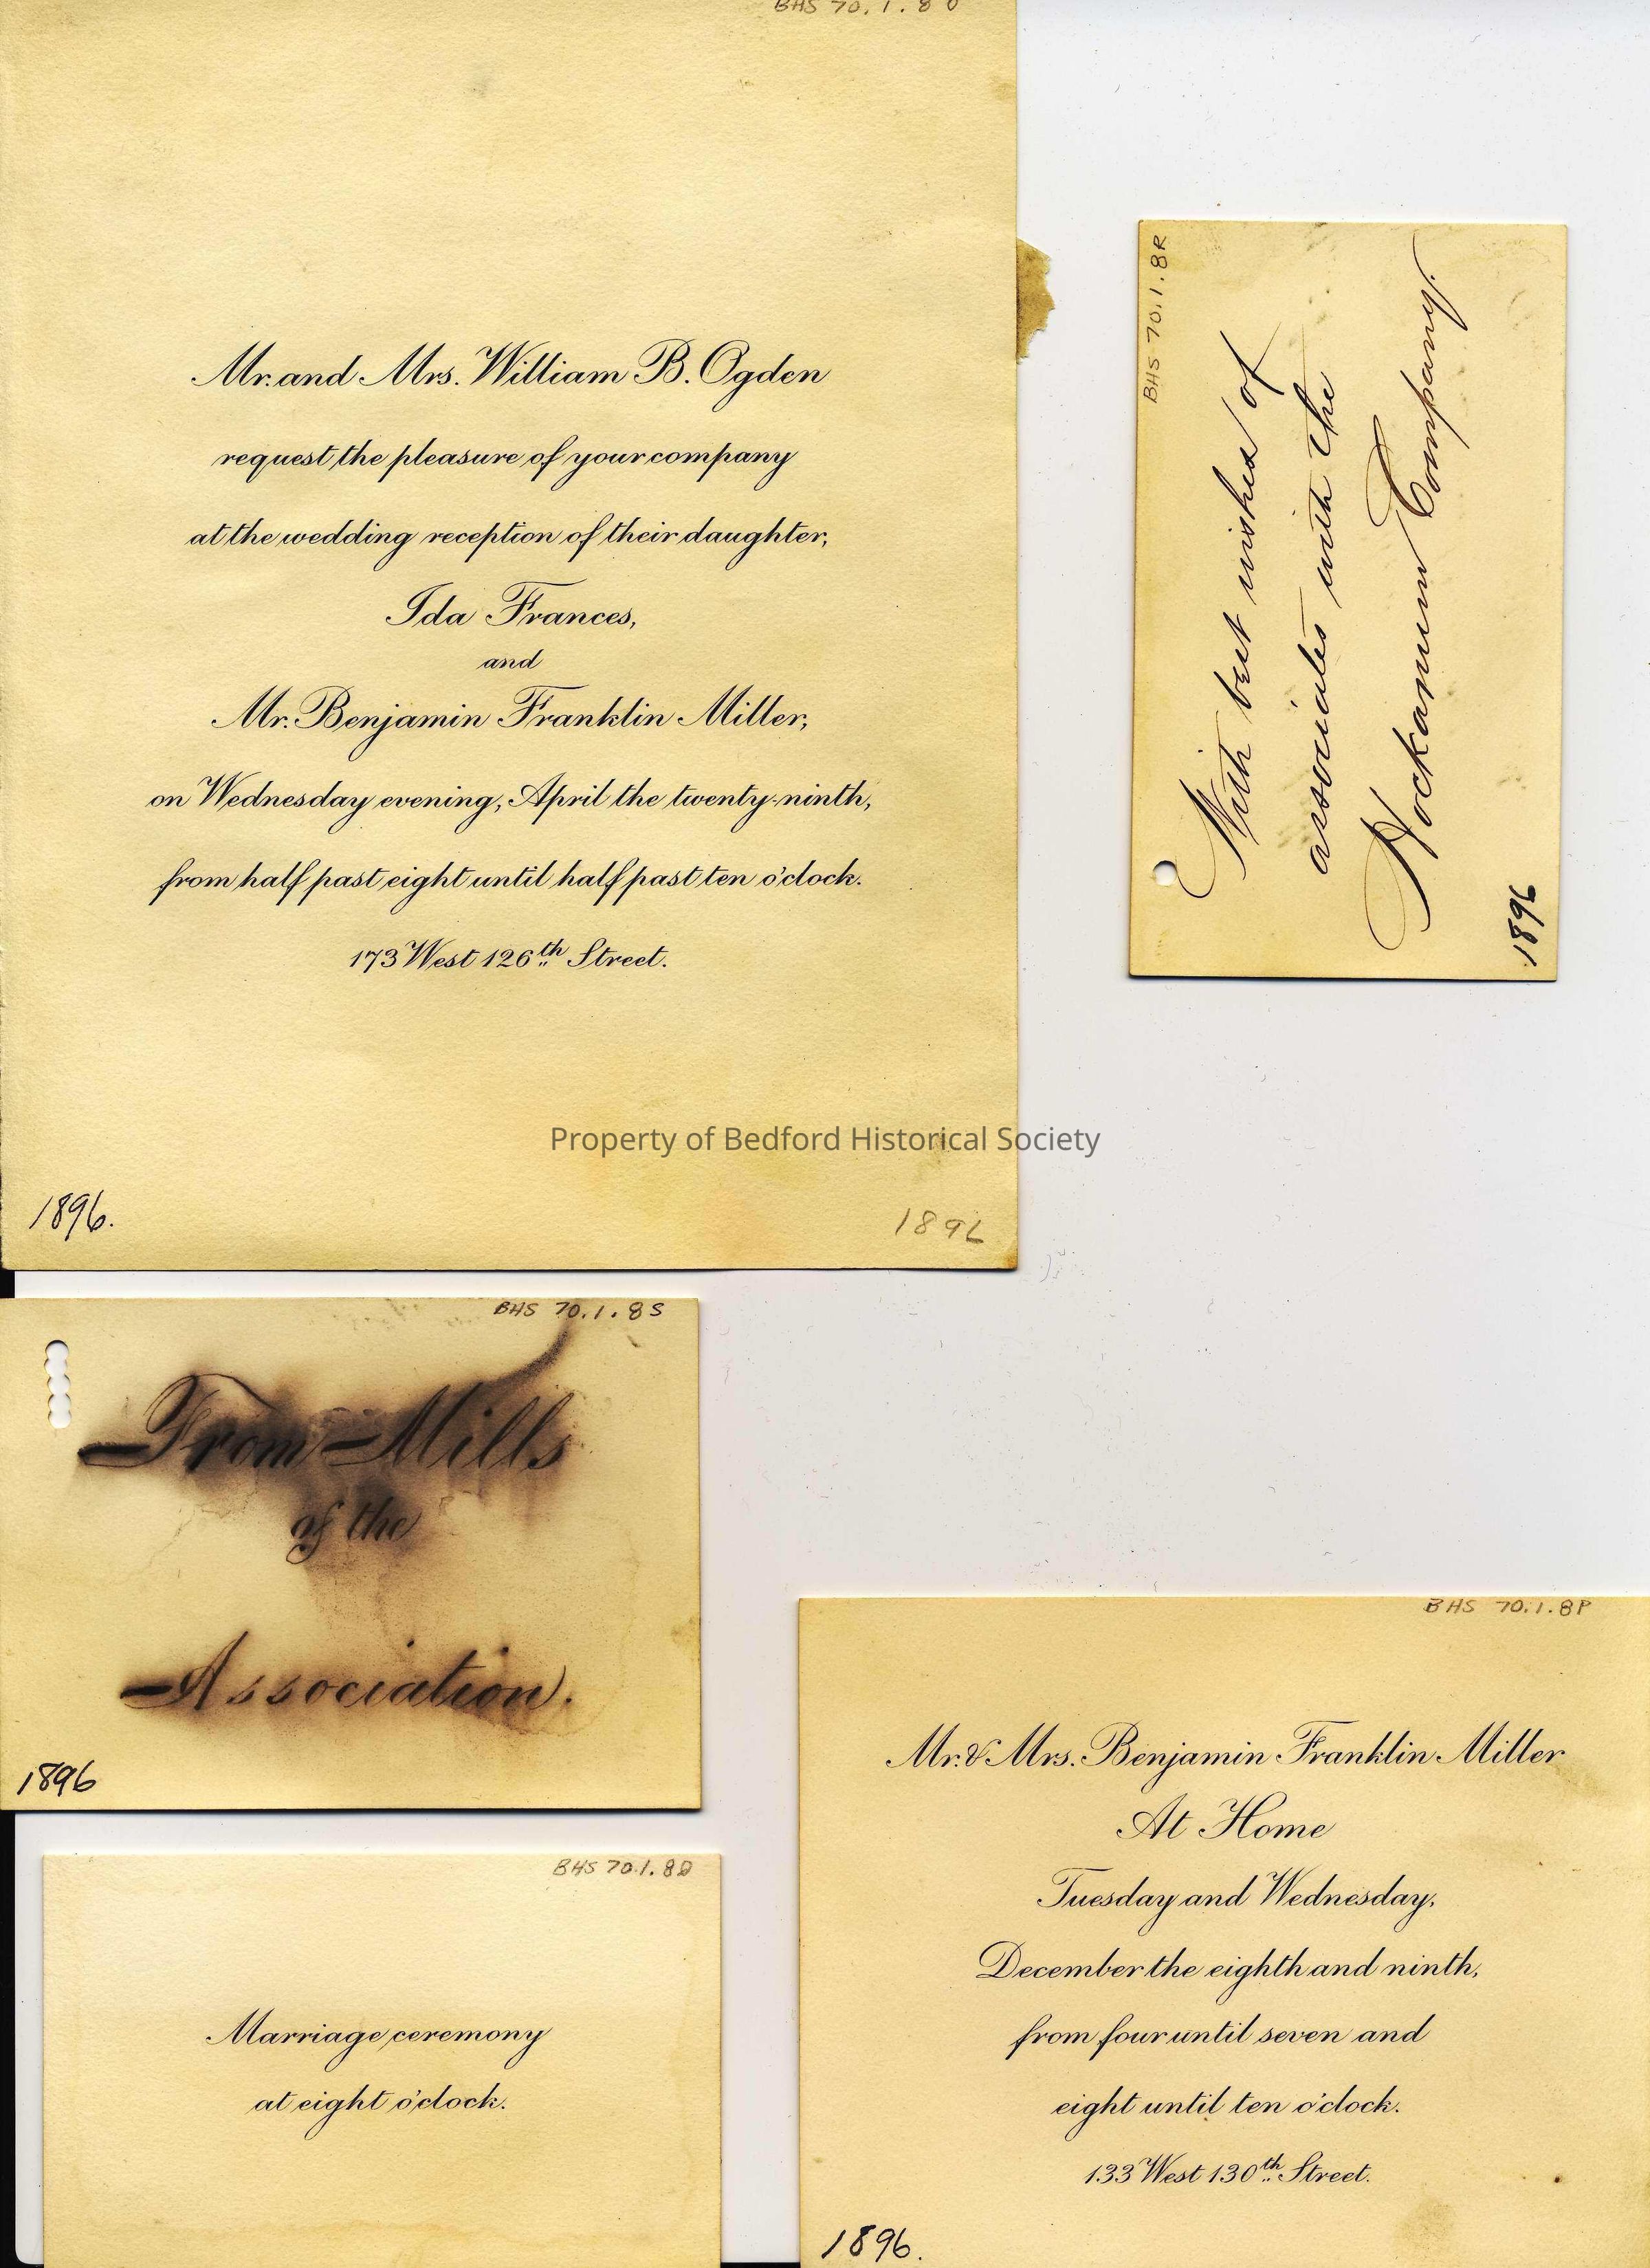 BHS 70.1.8 O
Mr. and Mrs. William B. Ogden
request the pleasure of your company
at the wedding reception of their daughter,
Ida Frances,
and
Mr. Benjamin Franklin Miller,
on Wednesday evening, April the twenty-ninth,
from half past eight until half past ten o'clock.
173 West 126th Street.
1896.
1896
Property of Bedford Historical Society
BHS 70.1.8R
With best wishes of
associates with the
Hockanum Company.
1896
BHS 70.1.8S
From Mills
of the
Association.
1896
BHS 70.1.8Q
Marriage ceremony
at eight o'clock.
BHS 70.1.8P
Mr. & Mrs. Benjamin Franklin Miller
At Home
Tuesday and Wednesday,
December the eighth and ninth,
from four until seven and
eight until ten o'clock.
133 West 130th Street.
1896.